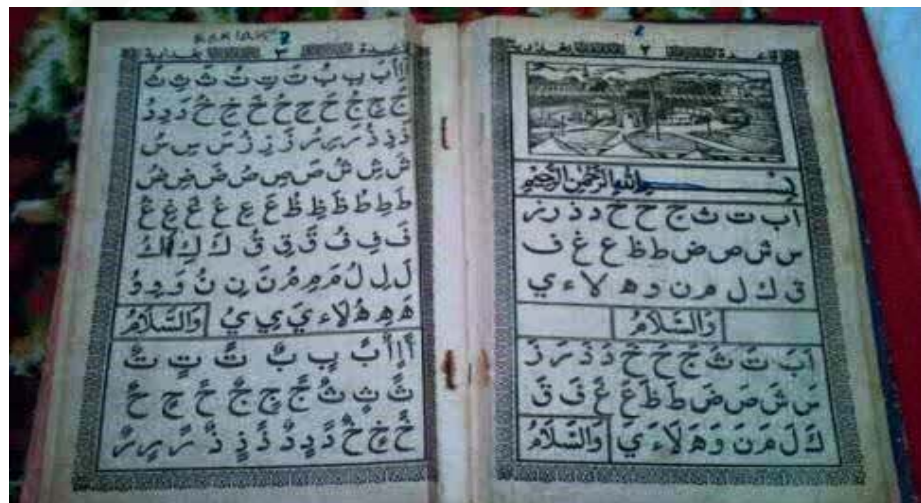 قاعدة ٢ بغدادية
بسم الله الرحمن الرحيم
ا ب ت ث ج ح خ د ذ ر ز
س ش ص ض ط ظ ع غ ف
ق ك ل م ن و ه لا ء ي
وَالسَّلَامُ
اَ بَ تَ ثَ جَ حَ خَ دَ ذَ رَ زَ
سَ شَ صَ ضَ طَ ظَ عَ غَ فَ قَ
كَ لَ مَ نَ وَ هَ لَا ءَ يَ وَالسَّلَامُ
قاعدة ٣ بغدادية
اَ اِ اُ بَ بِ بُ تَ تِ تُ ثَ ثِ ثُ
جَ جِ جُ حَ حِ حُ خَ خِ خُ دَ دِ دُ
ذَ ذِ ذُ رَ رِ رُ زَ زِ زُ سَ سِ سُ
شَ شِ شُ صَ صِ صُ ضَ ضِ ضُ
طَ طِ طُ ظَ ظِ ظُ عَ عِ عُ غَ غِ غُ
فَ فِ فُ قَ قِ قُ كَ كِ كُ
لَ لِ لُ مَ مِ مُ نَ نِ نُ وَ وِ وُ
هَ هِ هُ لَا ء يَ يِ يُ وَالسَّلَامُ
اً اٍ اٌ بً بٍ بٌ تً تٍ تٌ
ثً ثٍ ثٌ جً جٍ جٌ حً حٍ حٌ
خً خٍ خٌ دً دٍ دٌ ذً ذٍ ذٌ رً رٍ رٌ